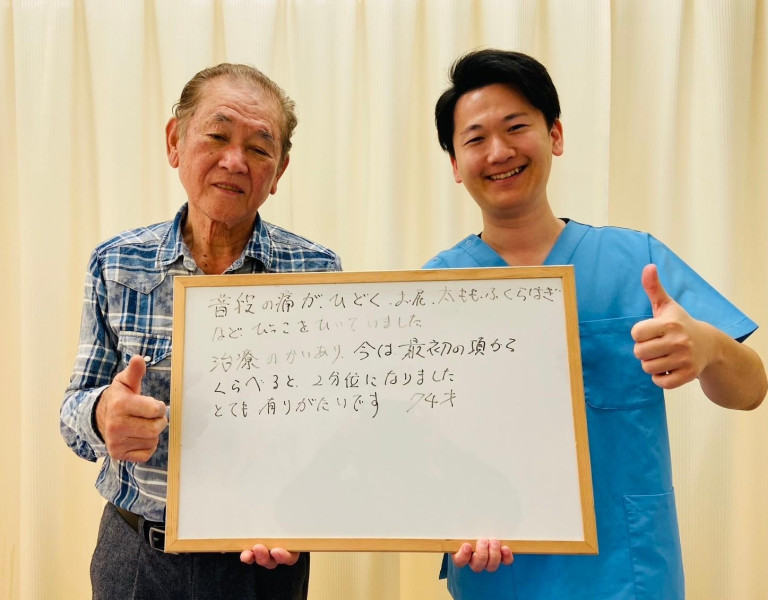 普段の痛が、ひどく、お尻、太もも、ふくらはぎ
など びっこをひいていました
治療のかいあり、今は最初の頃から
くらべると、2分位になりました
とても有りがたいです 74才